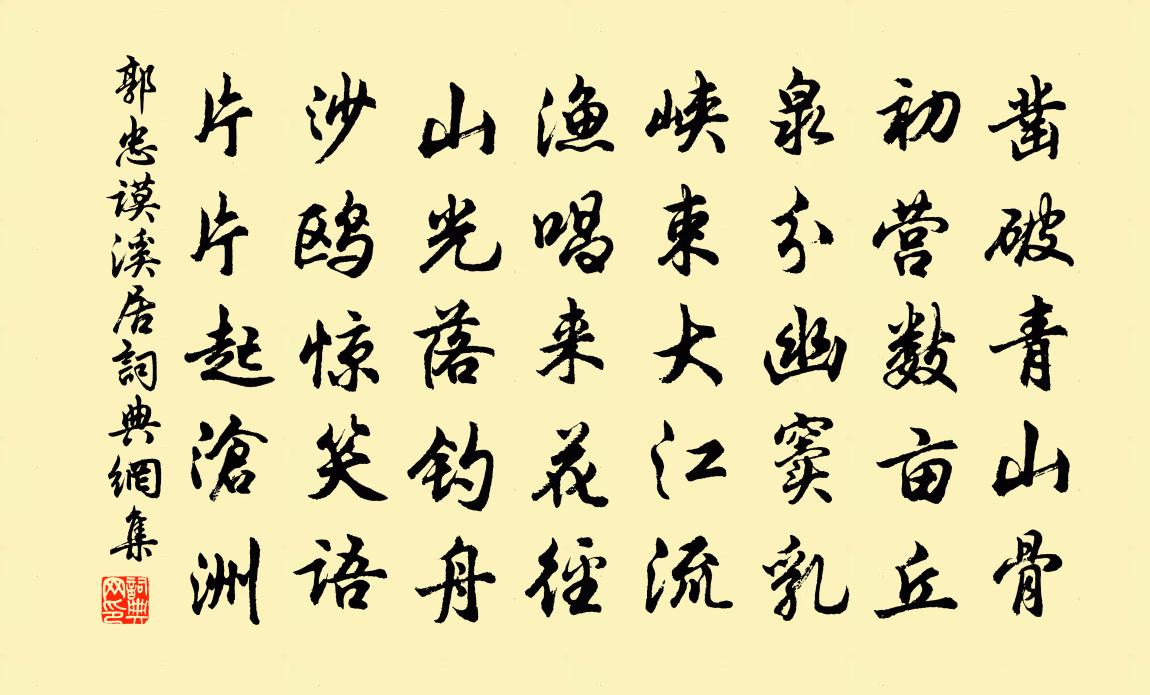 凿破青山骨
初营数亩丘
泉分幽窦乳
峡束大江流
渔唱来花径
山光落钓舟
沙鸥惊笑语
片片起滄洲
郭忠謨溪居詞典網集